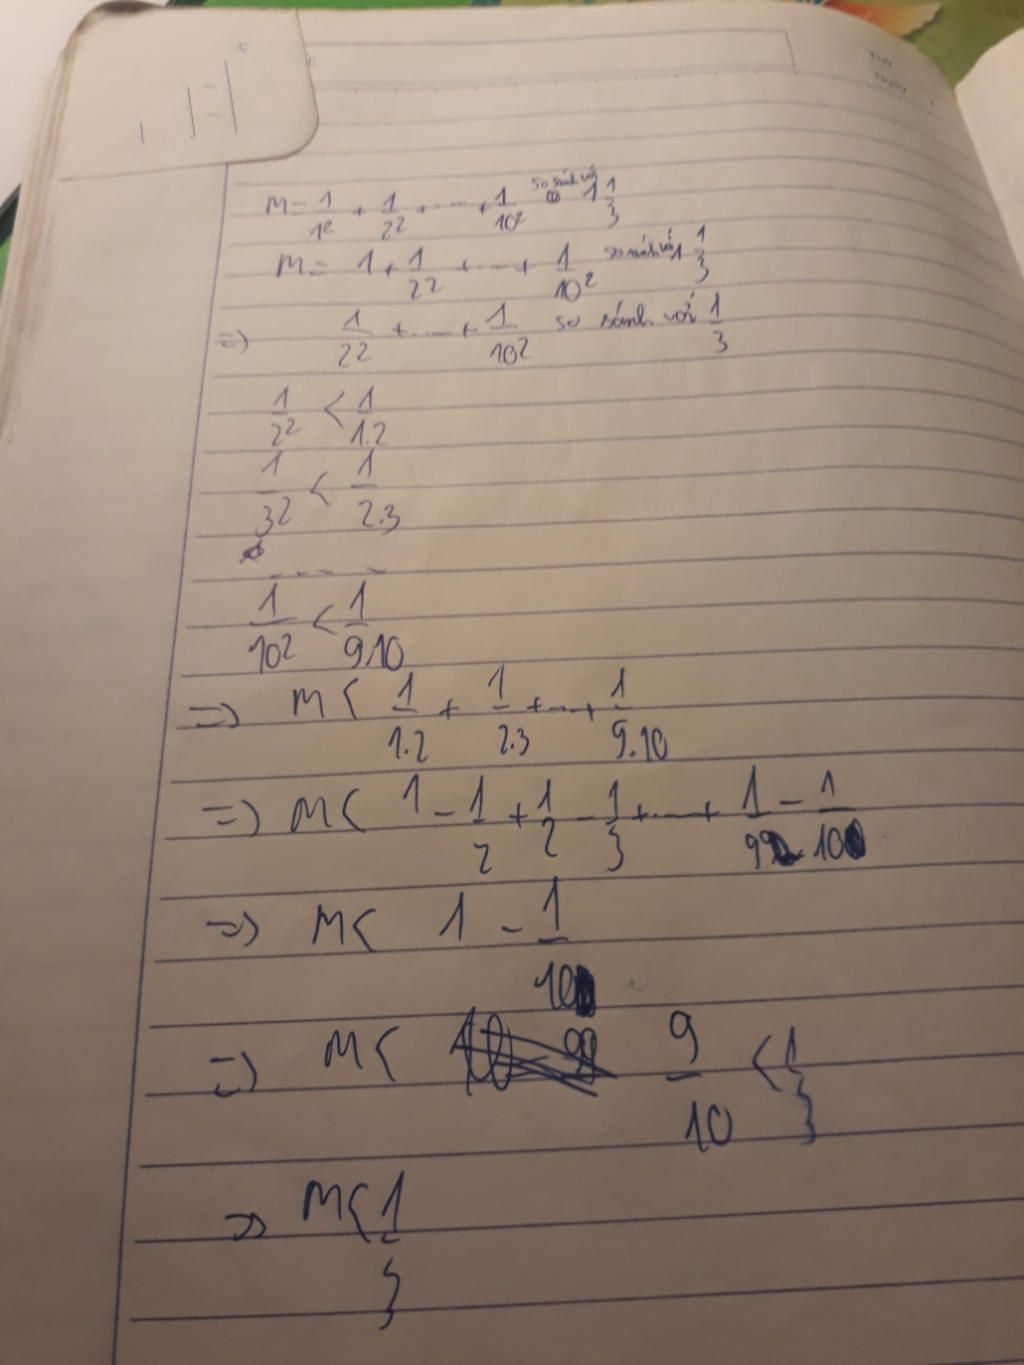 M = 1/1² + 1/2² + ... + 1/10² so sánh với 1 1/3
M = 1 + 1/2² + ... + 1/10² so sánh với 1 1/3
=> 1/2² + ... + 1/10² so sánh với 1/3
1/2² < 1/1.2
1/3² < 1/2.3
....
1/10² < 1/9.10
=> M < 1/1.2 + 1/2.3 + ... + 1/9.10
=> M < 1 - 1/2 + 1/2 - 1/3 + ... + 1/9 - 1/10
=> M < 1 - 1/10
=> M < 9/10 < 1/3
=> M < 1/3